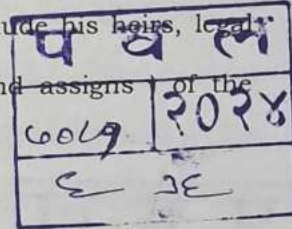 ude his heirs, legal
प व ल
nd assigns of the
७०८१ २०२४
६ ३६